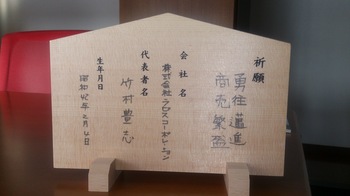 祈願
勇往邁進
商売繁盛
会社名
株式会社クロスコーポレーション
代表者名
竹村豊志
生年月日